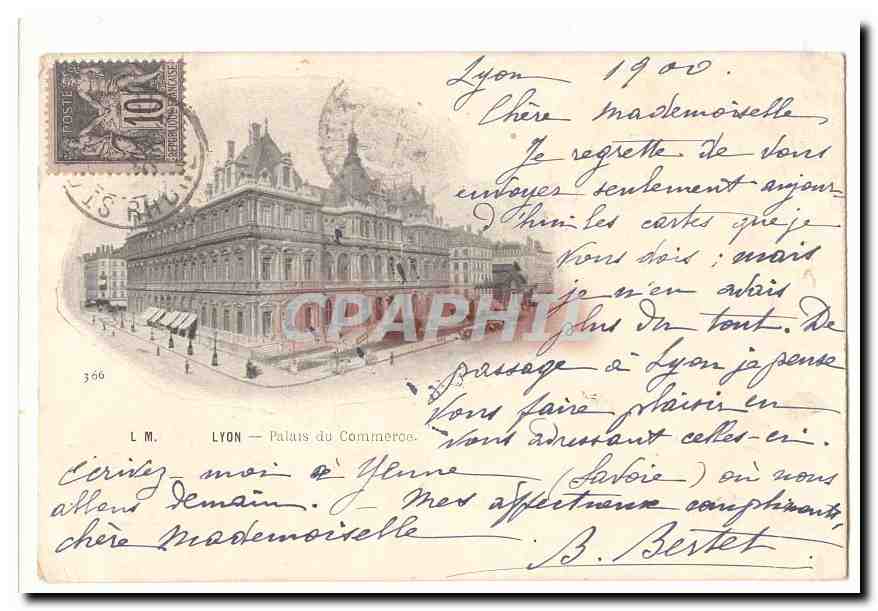 Lyon 1900.
Chère mademoiselle,
Je regrette de vous
envoyer seulement aujour-
d'hui les cartes que je
vous dois ; mais
je n'en avais
plus du tout. De
passage à Lyon je pense
vous faire plaisir en
vous adressant celles-ci.
POSTES
10
REPUBLIQUE FRANÇAISE
RHONE
CPAPHIL
366
L M. LYON — Palais du Commerce.
Écrivez-moi à Yenne (Savoie) où nous
allons demain. - Mes affectueux compliments,
chère Mademoiselle
B. Bertet